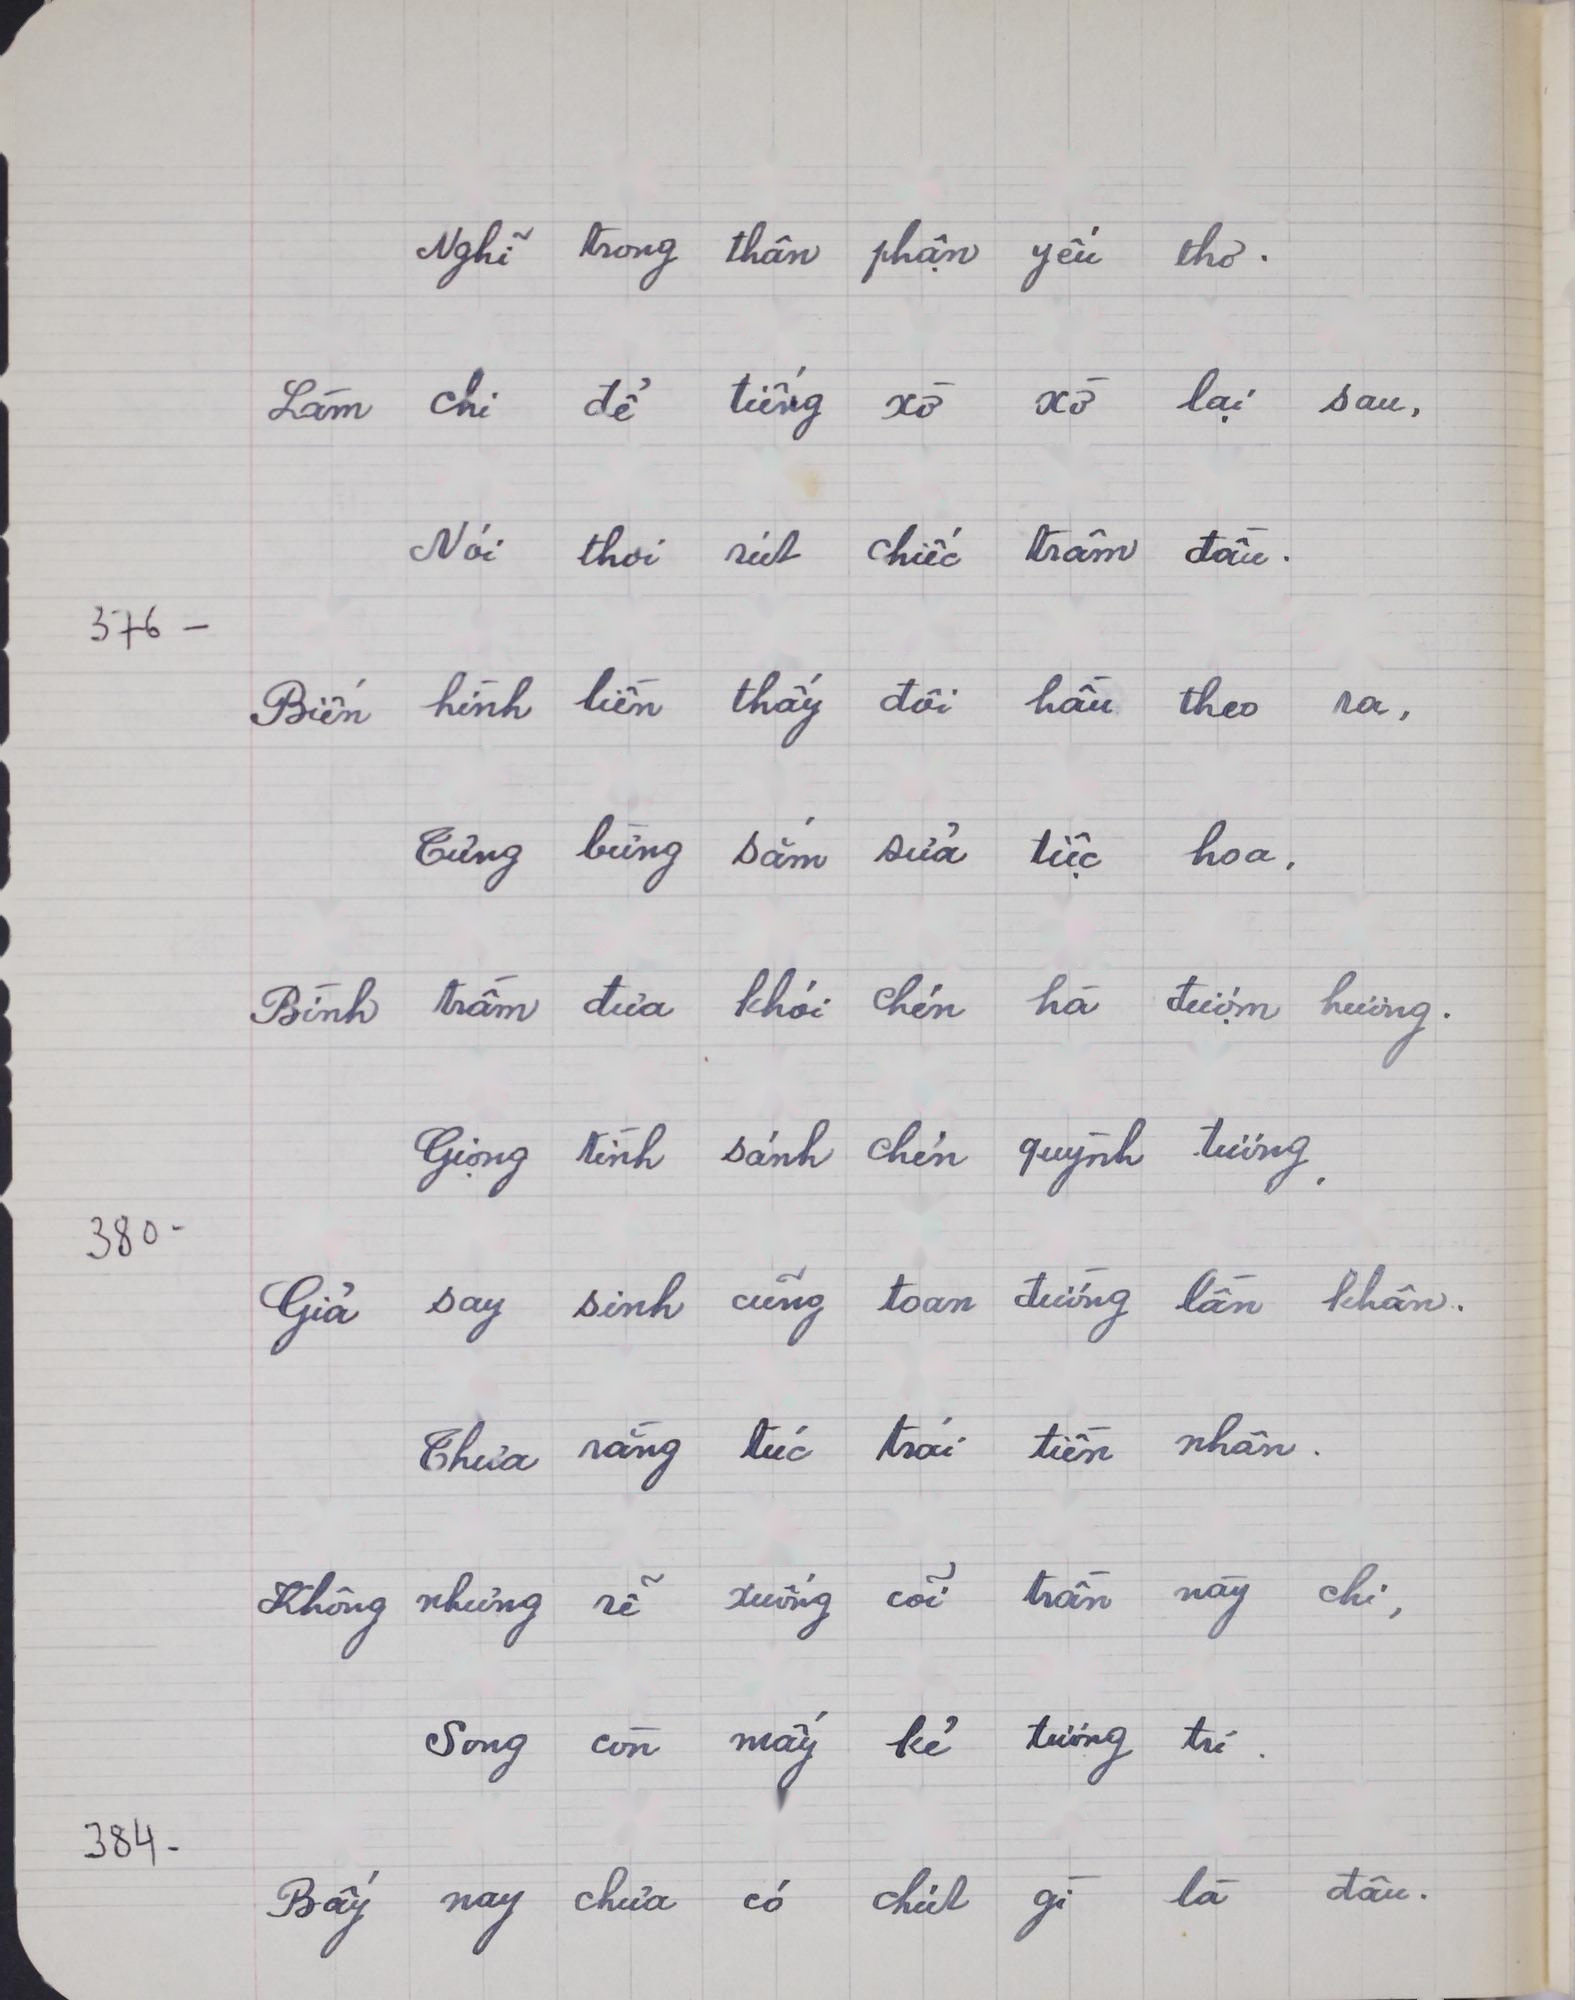 Nghĩ trong thân phận yếu thơ.
Làm chi để tiếng xờ xờ lại sau,
Nói thôi rút chiếc trâm đầu.
376 –
Biến hình liền thấy đôi hầu theo ra,
Tưng bừng sắm sửa tiệc hoa,
Bình trầm đưa khói chén hà đượm hương.
Giọng tình sánh chén quỳnh tương,
380 -
Giả say sinh cũng toan đường lần khân.
Thưa rằng túc trái tiền nhân.
Không nhưng rẽ xuống cõi trần này chi,
Song còn mấy kẻ tương tri.
384 -
Bấy nay chưa có chút gì là đâu.